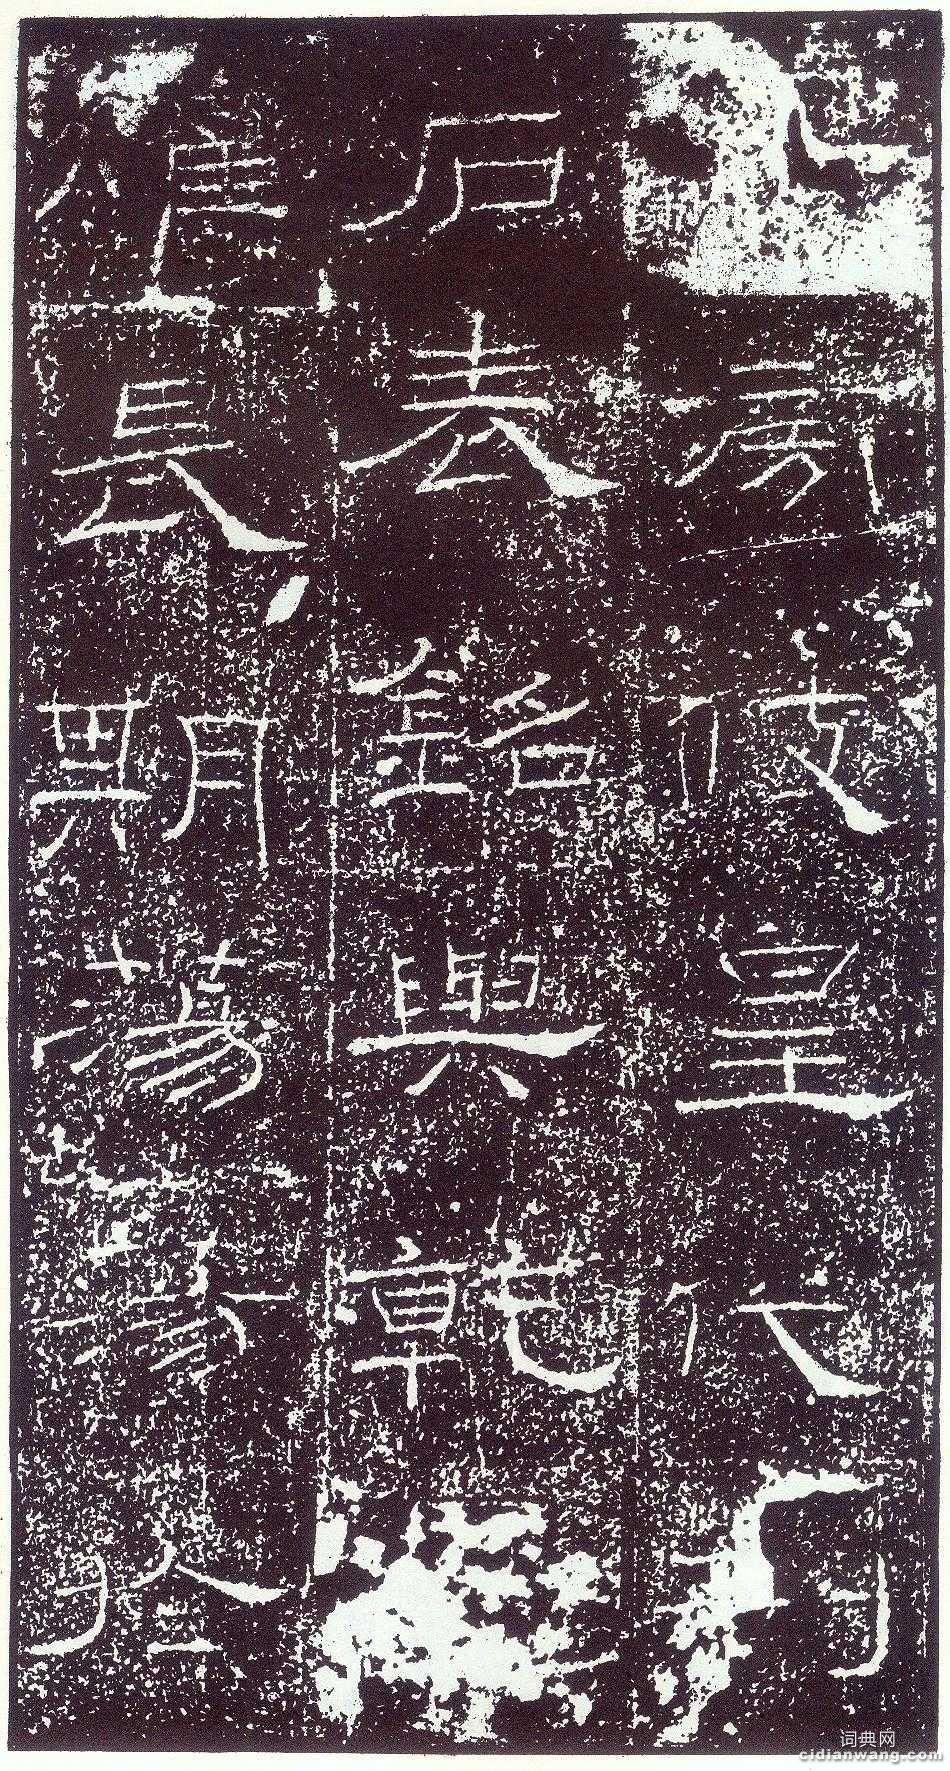 旁伎皇代刊
石表銘與乾
燿長期蕩蕩於
词典网
cidianwang.com